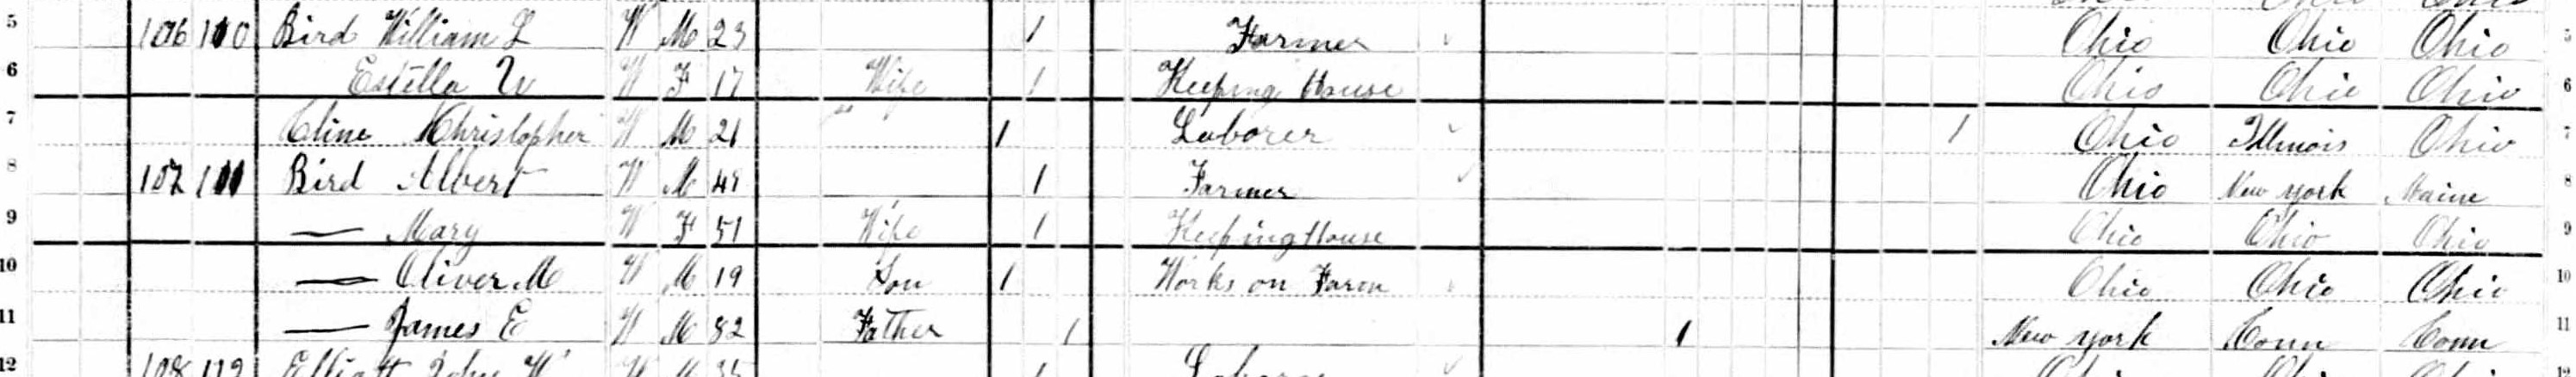 5 106 110 Bird William L W M 23 1 Farmer Ohio Ohio Ohio 5
6 Estella W F 17 Wife 1 Keeping House Ohio Ohio Ohio 6
7 Cline Christopher W M 21 1 Laborer 1 Ohio Illinois Ohio 7
8 107 111 Bird Albert W M 1 Farmer Ohio New York Maine 8
9 — Mary W F 51 Wife 1 Keeping House Ohio Ohio Ohio 9
10 — Oliver M W M 19 Son 1 Works on Farm Ohio Ohio Ohio 10
11 — James E W M 82 Father 1 1 New York Conn Conn 11
12 108 112 Elliott John W W M 35 1 Laborer Ohio Ohio Ohio 12